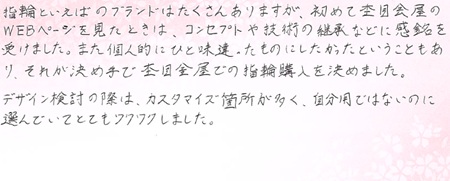 指輪といえばのブランドはたくさんありますが、初めて杢目金屋の
WEBページを見たときは、コンセプトや技術の継承などに感銘を
受けました。また個人的にひと味違ったものにしたかったということもあ
り、それが決め手で杢目金屋での指輪購入を決めました。
デザイン検討の際は、カスタマイズ箇所が多く、自分用ではないのに
選んでいてとてもワクワクしました。